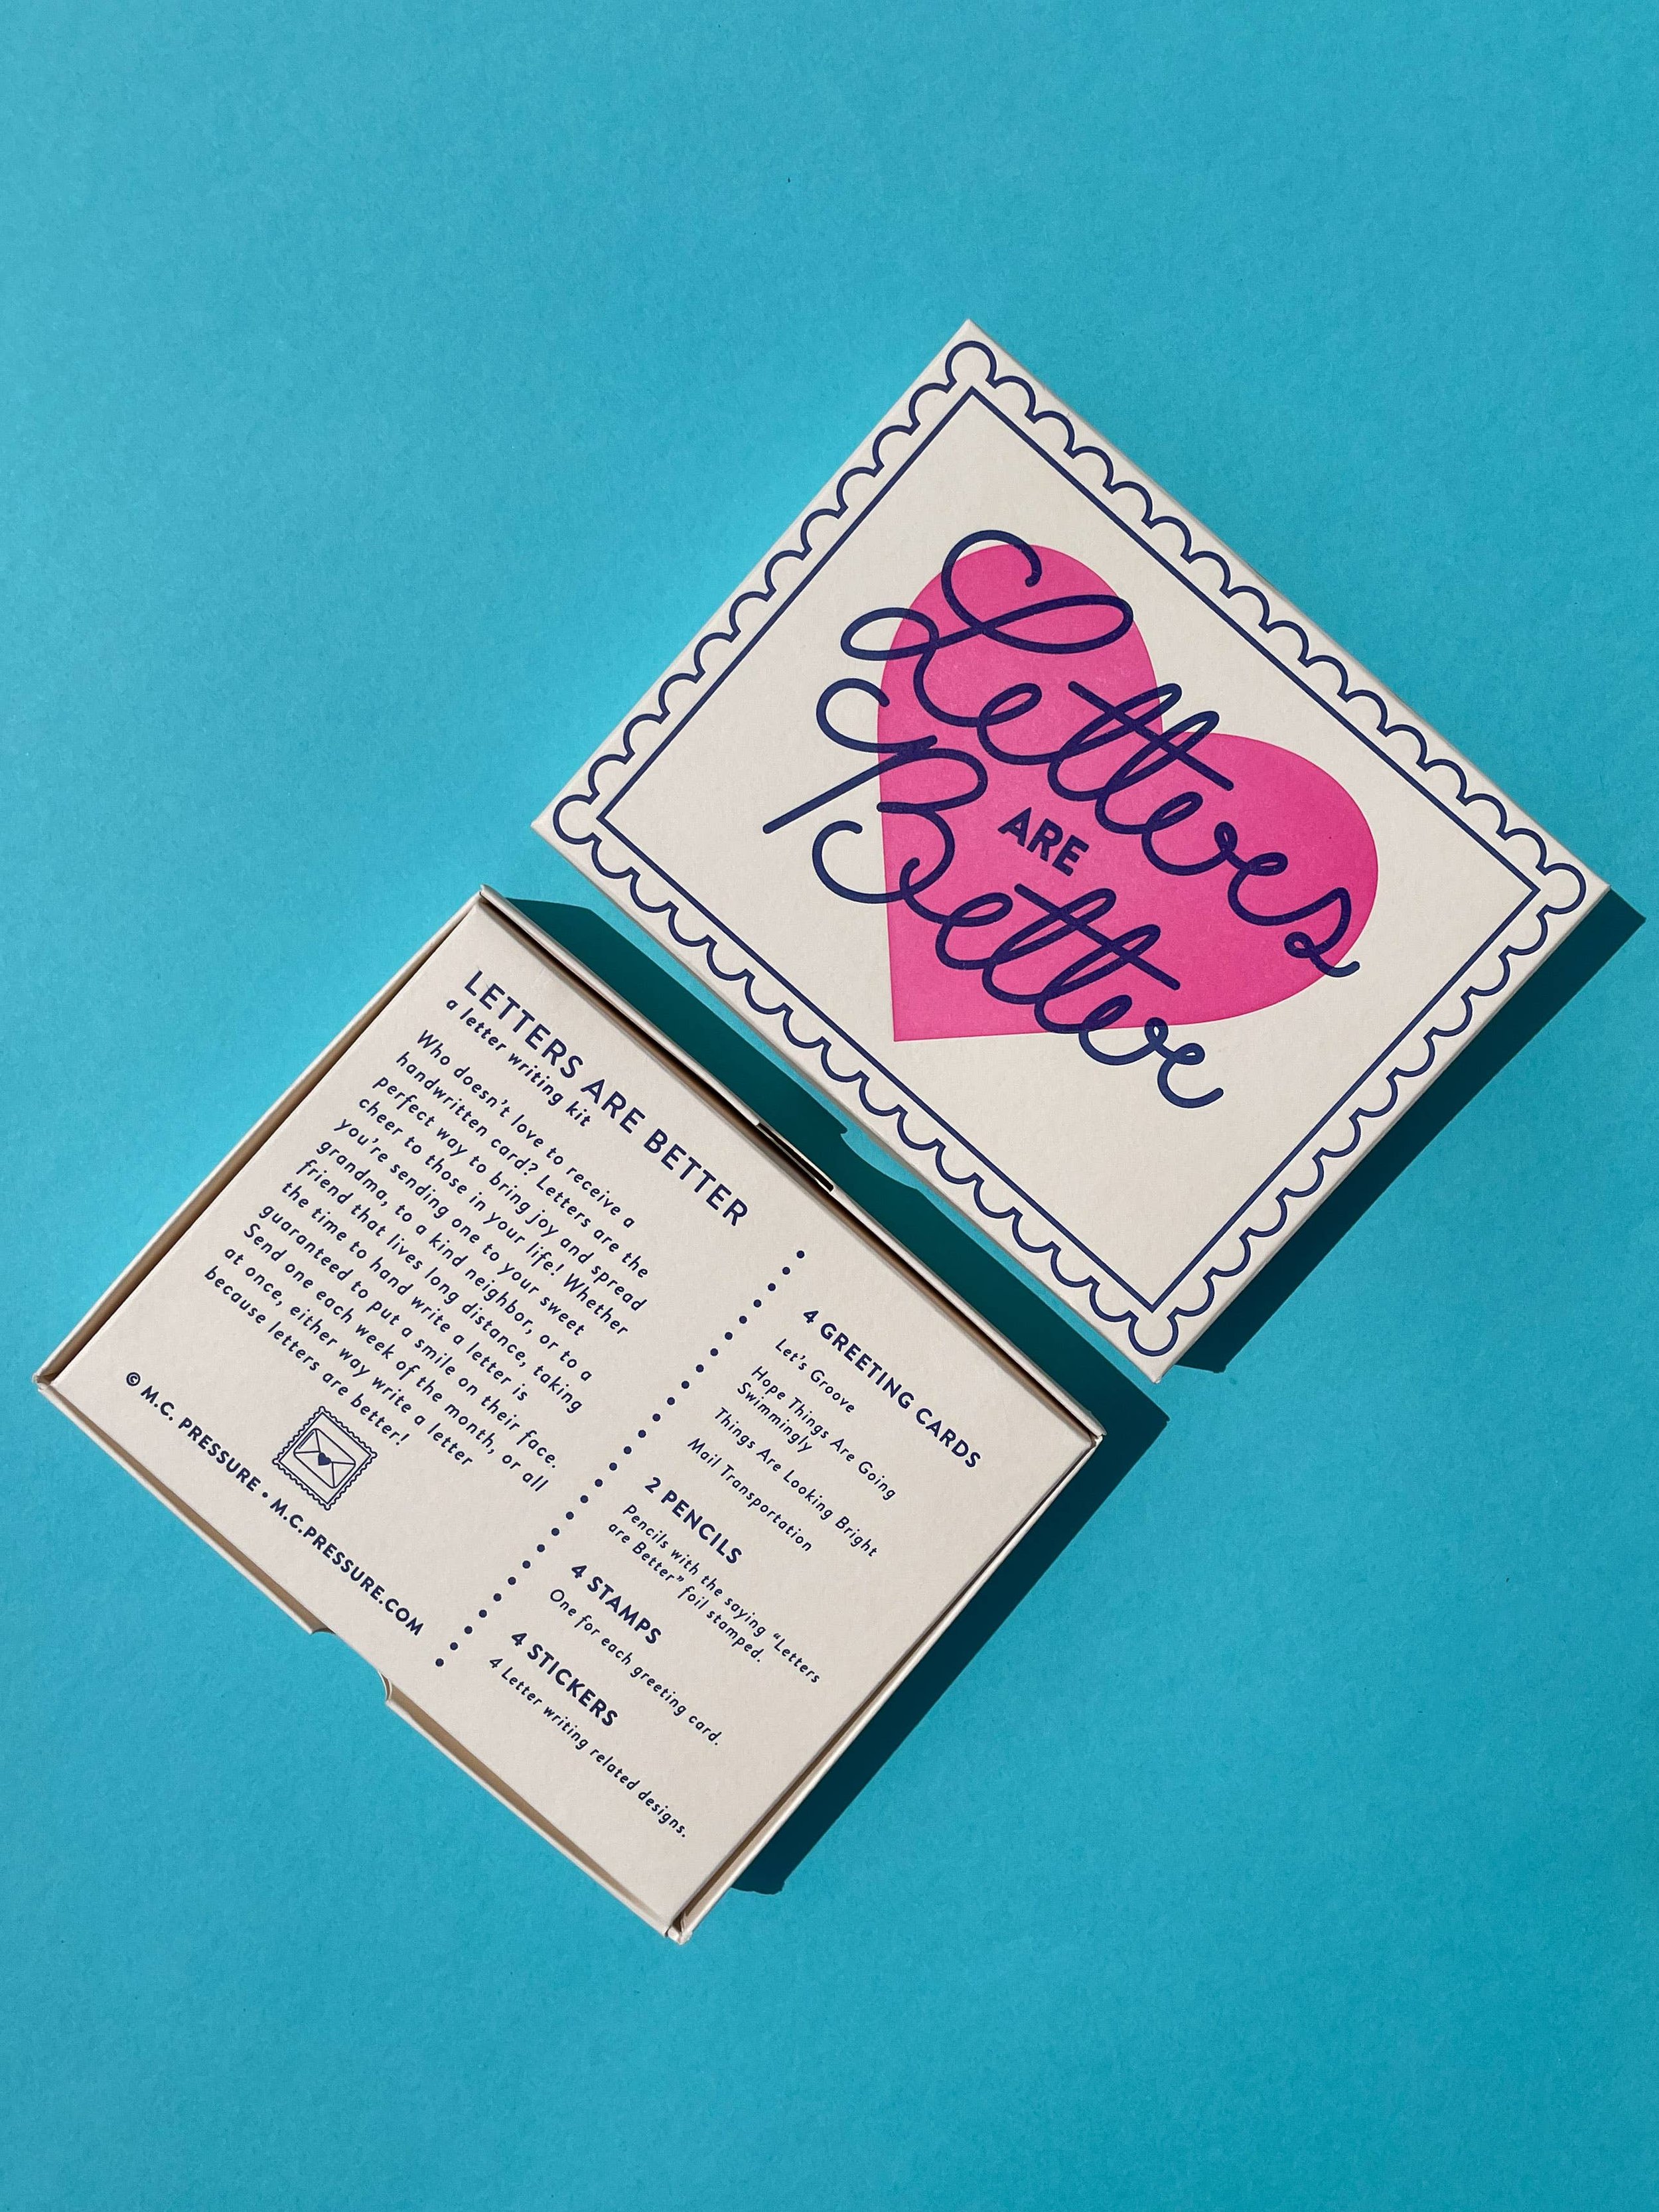 Letters
ARE
Better
LETTERS ARE BETTER
a letter writing kit
Who doesn't love to receive a
handwritten card? Letters are the
perfect way to bring joy and spread
cheer to those in your life! Whether
you're sending one to your sweet
grandma, to a kind neighbor, or to a
friend that lives long distance, taking
the time to hand write a letter is
guaranteed to put a smile on their face.
Send one each week of the month, or all
at once, either way write a letter
because letters are better!
© M.C. PRESSURE • M.C.PRESSURE.COM
4 GREETING CARDS
Let's Groove
Hope Things Are Going
Swimmingly
Things Are Looking Bright
Mail Transportation
2 PENCILS
Pencils with the saying "Letters
are Better" foil stamped.
4 STAMPS
One for each greeting card.
4 STICKERS
4 Letter writing related designs.